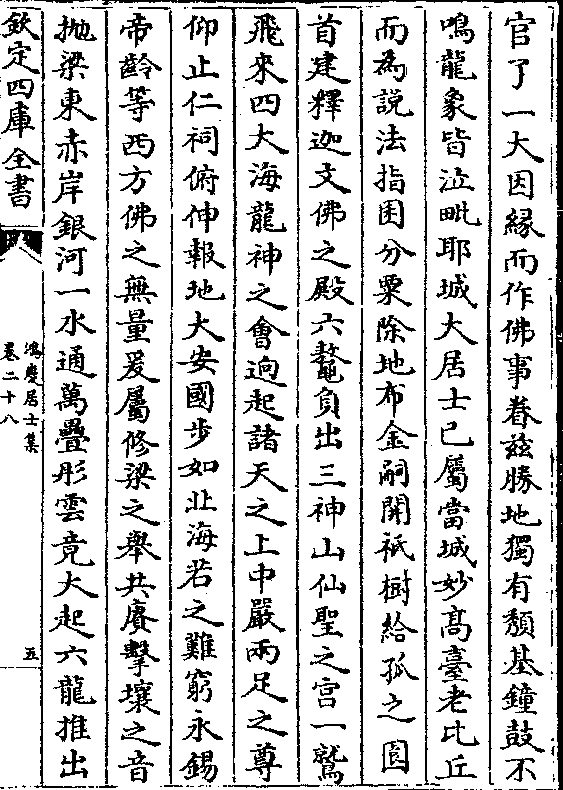 官了一大因緣而作佛事眷兹勝地獨有頽基鐘鼓不
鳴龍象皆泣毗耶城大居士已屬當城妙髙臺老比丘
而為説法指囷分粟除地布金嗣開祇樹給孤之園
首建釋迦文佛之殿六鼇負出三神山仙聖之宫一鷲
飛來四大海龍神之會逈起諸天之上中嚴兩足之尊
仰止仁祠俯伸報地大安國步如北海若之難窮永錫
帝齡等西方佛之無量爰屬修梁之舉共賡擊壤之音
抛梁東赤岸銀河一水通萬疊彤雲竟天起六龍推出
欽定四庫全書
鴻慶居士集
卷二十八
五